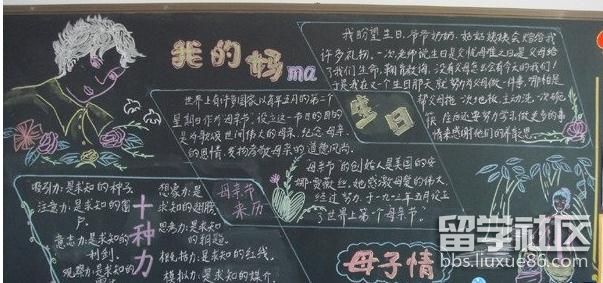 我的妈ma
世界上有许多国家以每年五月的第二个
星期日作为母亲节。设立这一节日的目的
是为歌颂世间伟大的母亲，纪念母亲
的恩情，发扬孝敬母亲的道德风尚。
母亲节
来历
母亲节的创始人是美国的安
娜·贾薇丝。她感激母爱的伟大
经过努力，于一九一三年五月设立
了世界上第一个母亲节。
生日
我盼望生日，爷爷奶奶、姥姥姨姨会赠给我
许多礼物。一次老师说生日是父忧母难之日是父母给
了我们生命，
没有父母怎会有今天的我们！
于是我在又一个生日那天就努力为父母做一件事，哪怕是
帮父母拖一次地板，主动洗一次碗
筷，往后还要努力学习做更多的事
情来感谢他们的养育之恩。
十种力
吸引力：是求知的种子
注意力：是求知的窗
户。
意志力：是求知的
利剑。
观察力：是求知的
想象力：是
求知的翅膀。
思考力：是求知
的钥匙
是求知的红线。
模拟力：是求知的媒介
母子情
留学社区
bbs.liuxue86.com